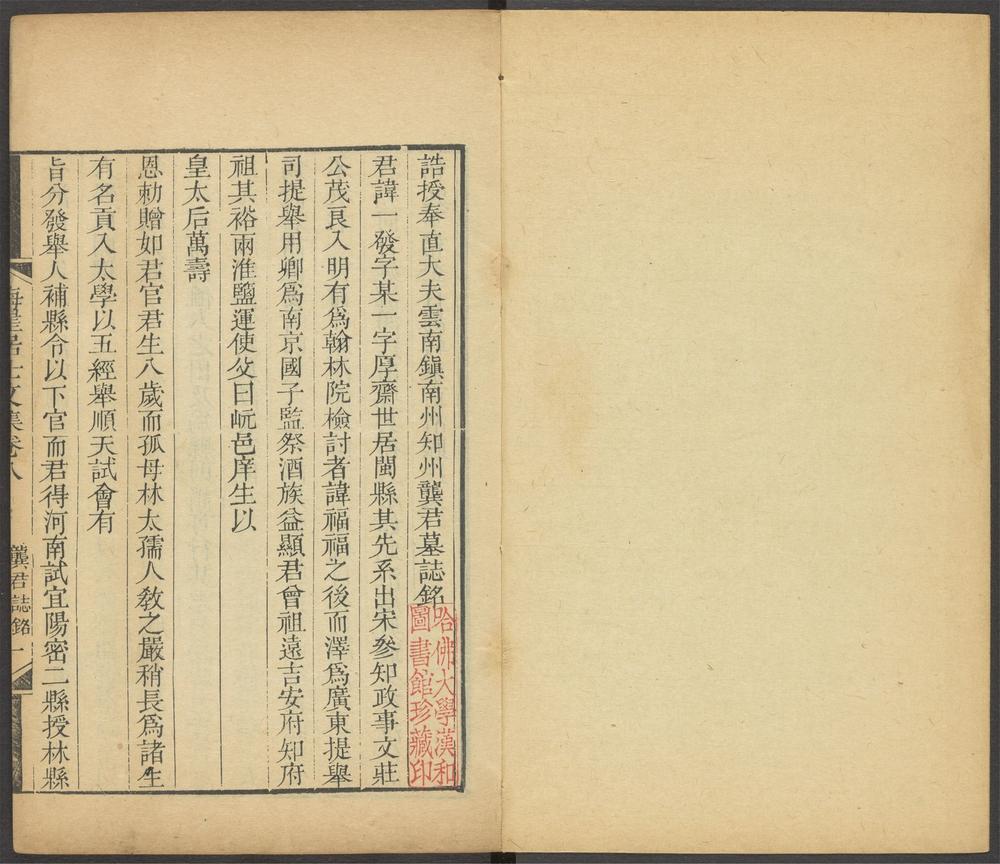 誥授奉直大夫雲南鎭南州知州龔君墓誌銘
哈佛大學漢和
圖書館珍藏印
君諱一發字某一字厚齋世居閩縣其先系出宋參知政事文莊
公茂良入明有爲翰林院檢討者諱福福之後而澤爲廣東提舉
司提舉用卿爲南京國子監祭酒族益顯君曾祖遠吉安府知府
祖其裕兩淮鹽運使父曰岏邑庠生以
皇太后萬壽
恩勅贈如君官君生八歲而孤母林太孺人敎之嚴稍長爲諸生
有名貢入太學以五經舉順天試會有
旨分發舉人補縣令以下官而君得河南試宜陽密二縣授林縣
海厓居士文集卷八
龔君誌銘
一